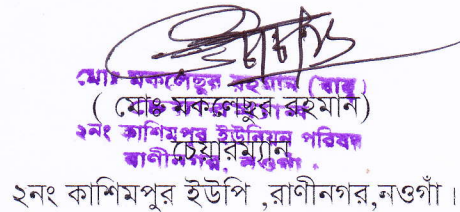 মোঃ মকলেছুর রহমান (বাবু)
( মোঃ মকলেছুর রহমান)
২নং কাশিমপুর ইউনিয়ন পরিষদ
চেয়ারম্যান
রাণীনগর, নওগাঁ ।
২নং কাশিমপুর ইউপি ,রাণীনগর,নওগাঁ ।